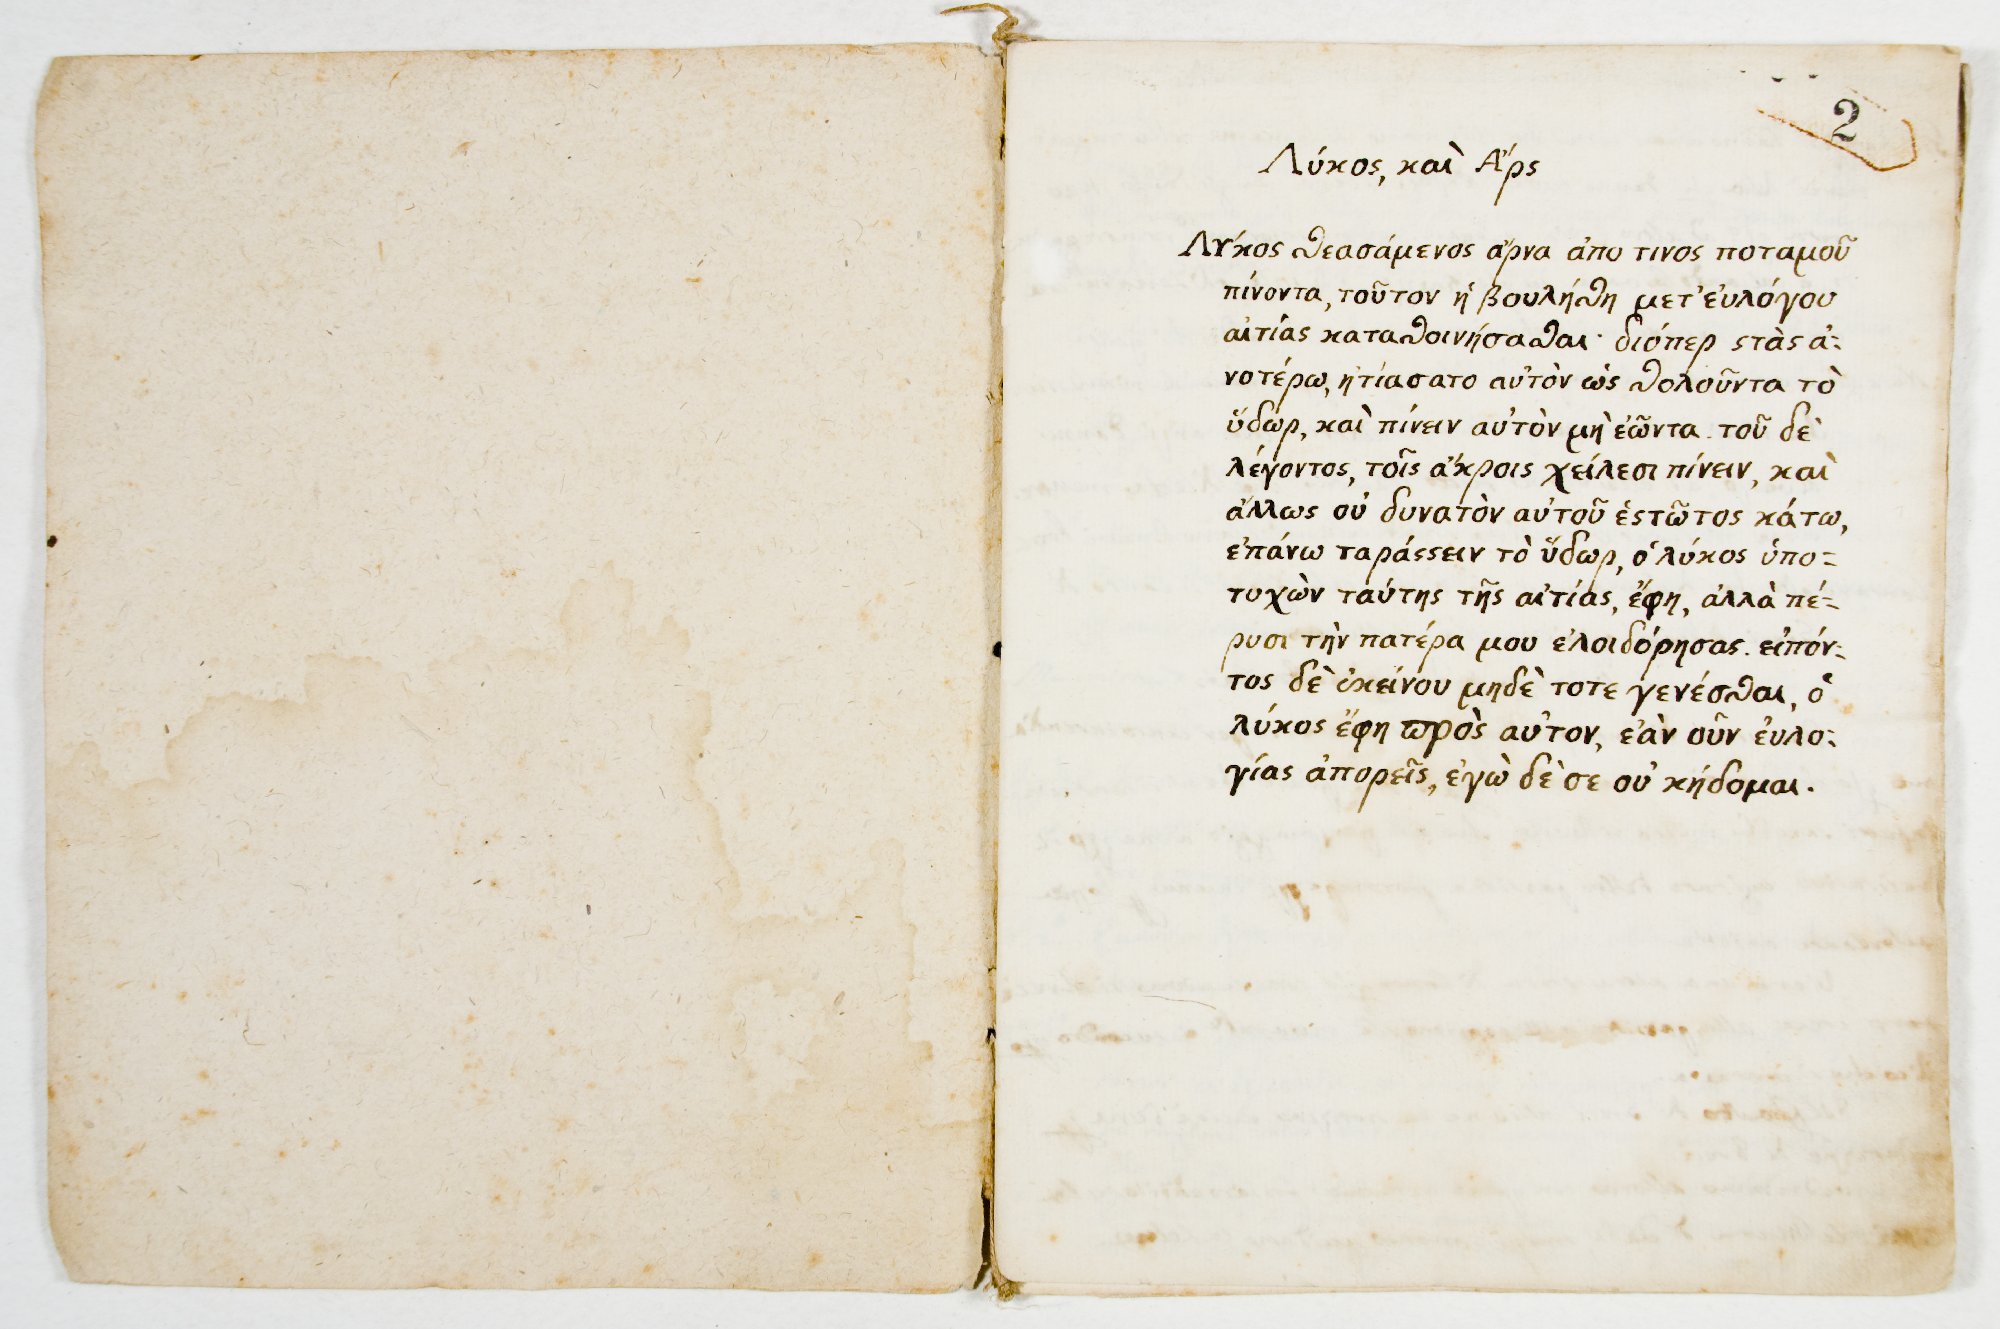 2
Λύκος, καὶ Ἄρς
Λύκος θεασάμενος ἄρνα ἀπο τινος ποταμοῦ
πίνοντα, τοῦτον ἠβουλήθη μετ' ἐυλόγου
αἰτίας καταθοινήσαθαι· διόπερ στὰς ἀ-
νοτέρω, ἠτίασατο αὐτὸν ὡς θολοῦντα τὸ
ὕδωρ, καὶ πίνειν αὐτὸν μὴ ἐῶντα. τοῦ δὲ
λέγοντος, τοῖς ἄκροις χείλεσι πίνειν, καὶ
ἄλλως οὐ δυνατὸν αὐτοῦ ἑστῶτος κάτω,
ἐπάνω ταράσσειν τὸ ὕδωρ, ὁ λύκος ὑπο-
τυχὼν ταύτης τῆς αἰτίας, ἔφη, ἀλλὰ πέ-
ρυσι τὴν πατέρα μου ἐλοιδόρησας. εἰπόν-
τος δὲ ἐκείνου μηδὲ τοτε γενέσθαι, ὁ
λύκος ἔφη πρὸς αὐτον, ἐὰν οὖν ἐυλο-
γίας ἀπορεῖς, ἐγὼ δὲ σε οὐ κήδομαι.